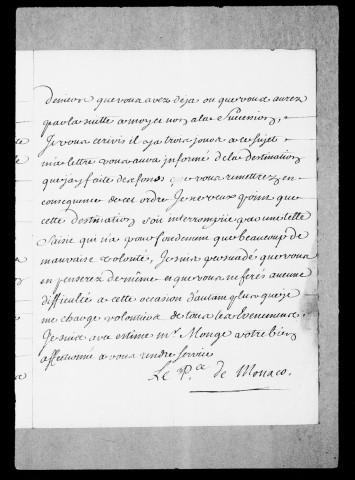 deniers que vous avez deja ou que vous aurez
par la suitte a moy et non a la Succession,
Je vous ecrivis il y a trois jours a ce sujet
ma lettre vous aura informé de la destination
que j'ay faite des fonds que vous remettrez en
consequence de cet ordre Je ne veux point que
cette destination soit interrompüe par une telle
Saisie qui n'a pour fondement que beaucoup de
mauvaise volonté, Je suis persuadé que vous
en penserez de même et que vous ne ferés aucune
difficultée a cette occasion d'autant plus que je
me charge volontiers de tous les Evenements.
Je suis avec estime Mr. Monge votre bien
affectionné a vous rendre service
Le P.ce de Monaco.